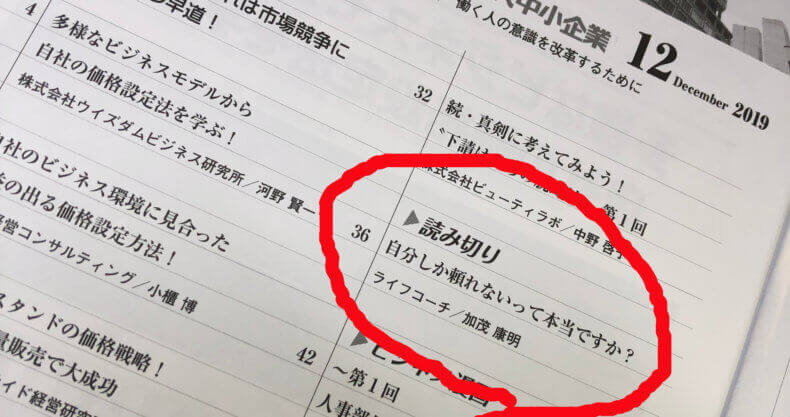 中小企業
働く人の意識を改革するために
12
December 2019
は市場競争に
早道！
4
多様なビジネスモデルから
自社の価格設定法を学ぶ！
株式会社ウイズダムビジネス研究所／河野 賢一
自社のビジネス環境に見合った
の出る価格設定方法！
経営コンサルティング／小櫃 博
スタンドの価格戦略！
量販売で大成功
イド経営研究
32
続・真剣に考えてみよう！
〝下請け
第1回
株式会社ビューティラボ／中野 啓子
36
▶読み切り
自分しか頼れないって本当ですか？
ライフコーチ／加茂 康明
42
～第1回
人事部